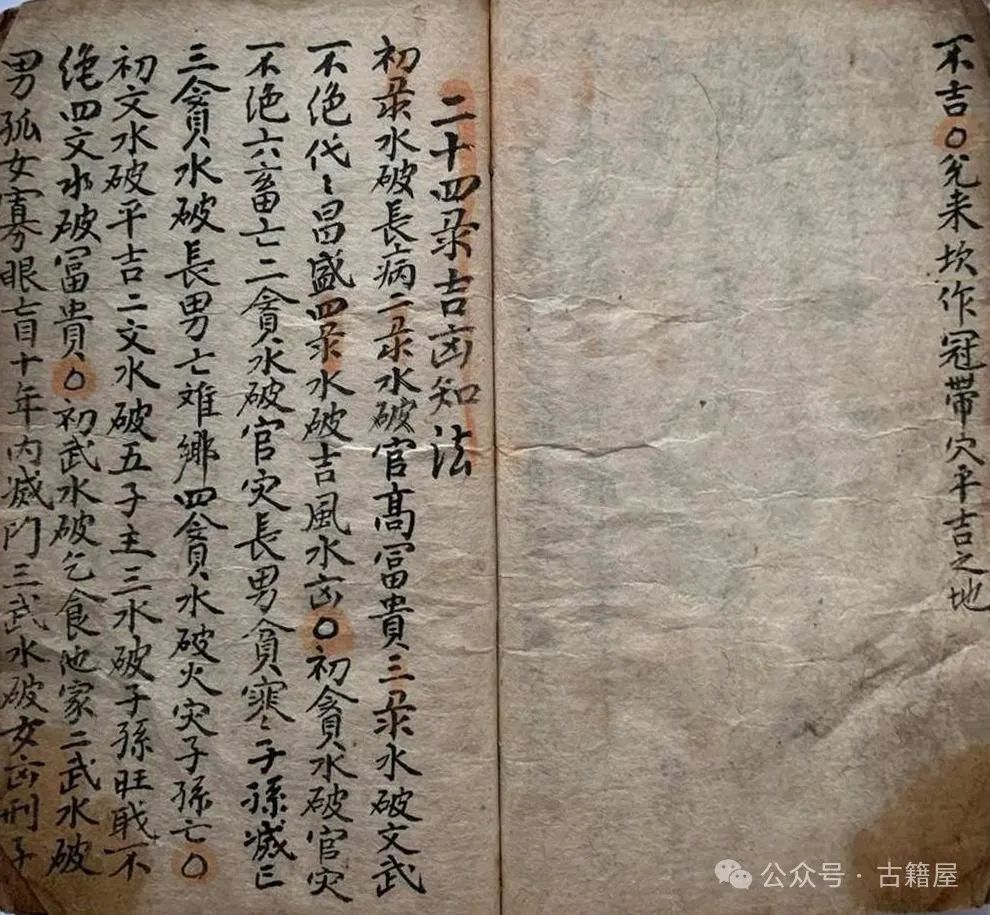 不吉〇兊来坎作冠帶穴平吉之地
二十四录吉凶知法
初录水破長病二录水破官髙冨貴三录水破文武
不绝代〻昌盛四录水破吉風水凶〇初貪水破官灾
不绝六畜亡二貪水破官灾長男貧寒子孫滅亡
三貪水破長男亡难鄉四貪水破火灾子孫亡〇
初文水破平吉二文水破五子主三水破子孫旺戝不
绝四文水破冨貴〇初武水破乞食他家二武水破
男孤女寡眼盲十年内滅门三武水破女凶刑子
公众号·古籍屋